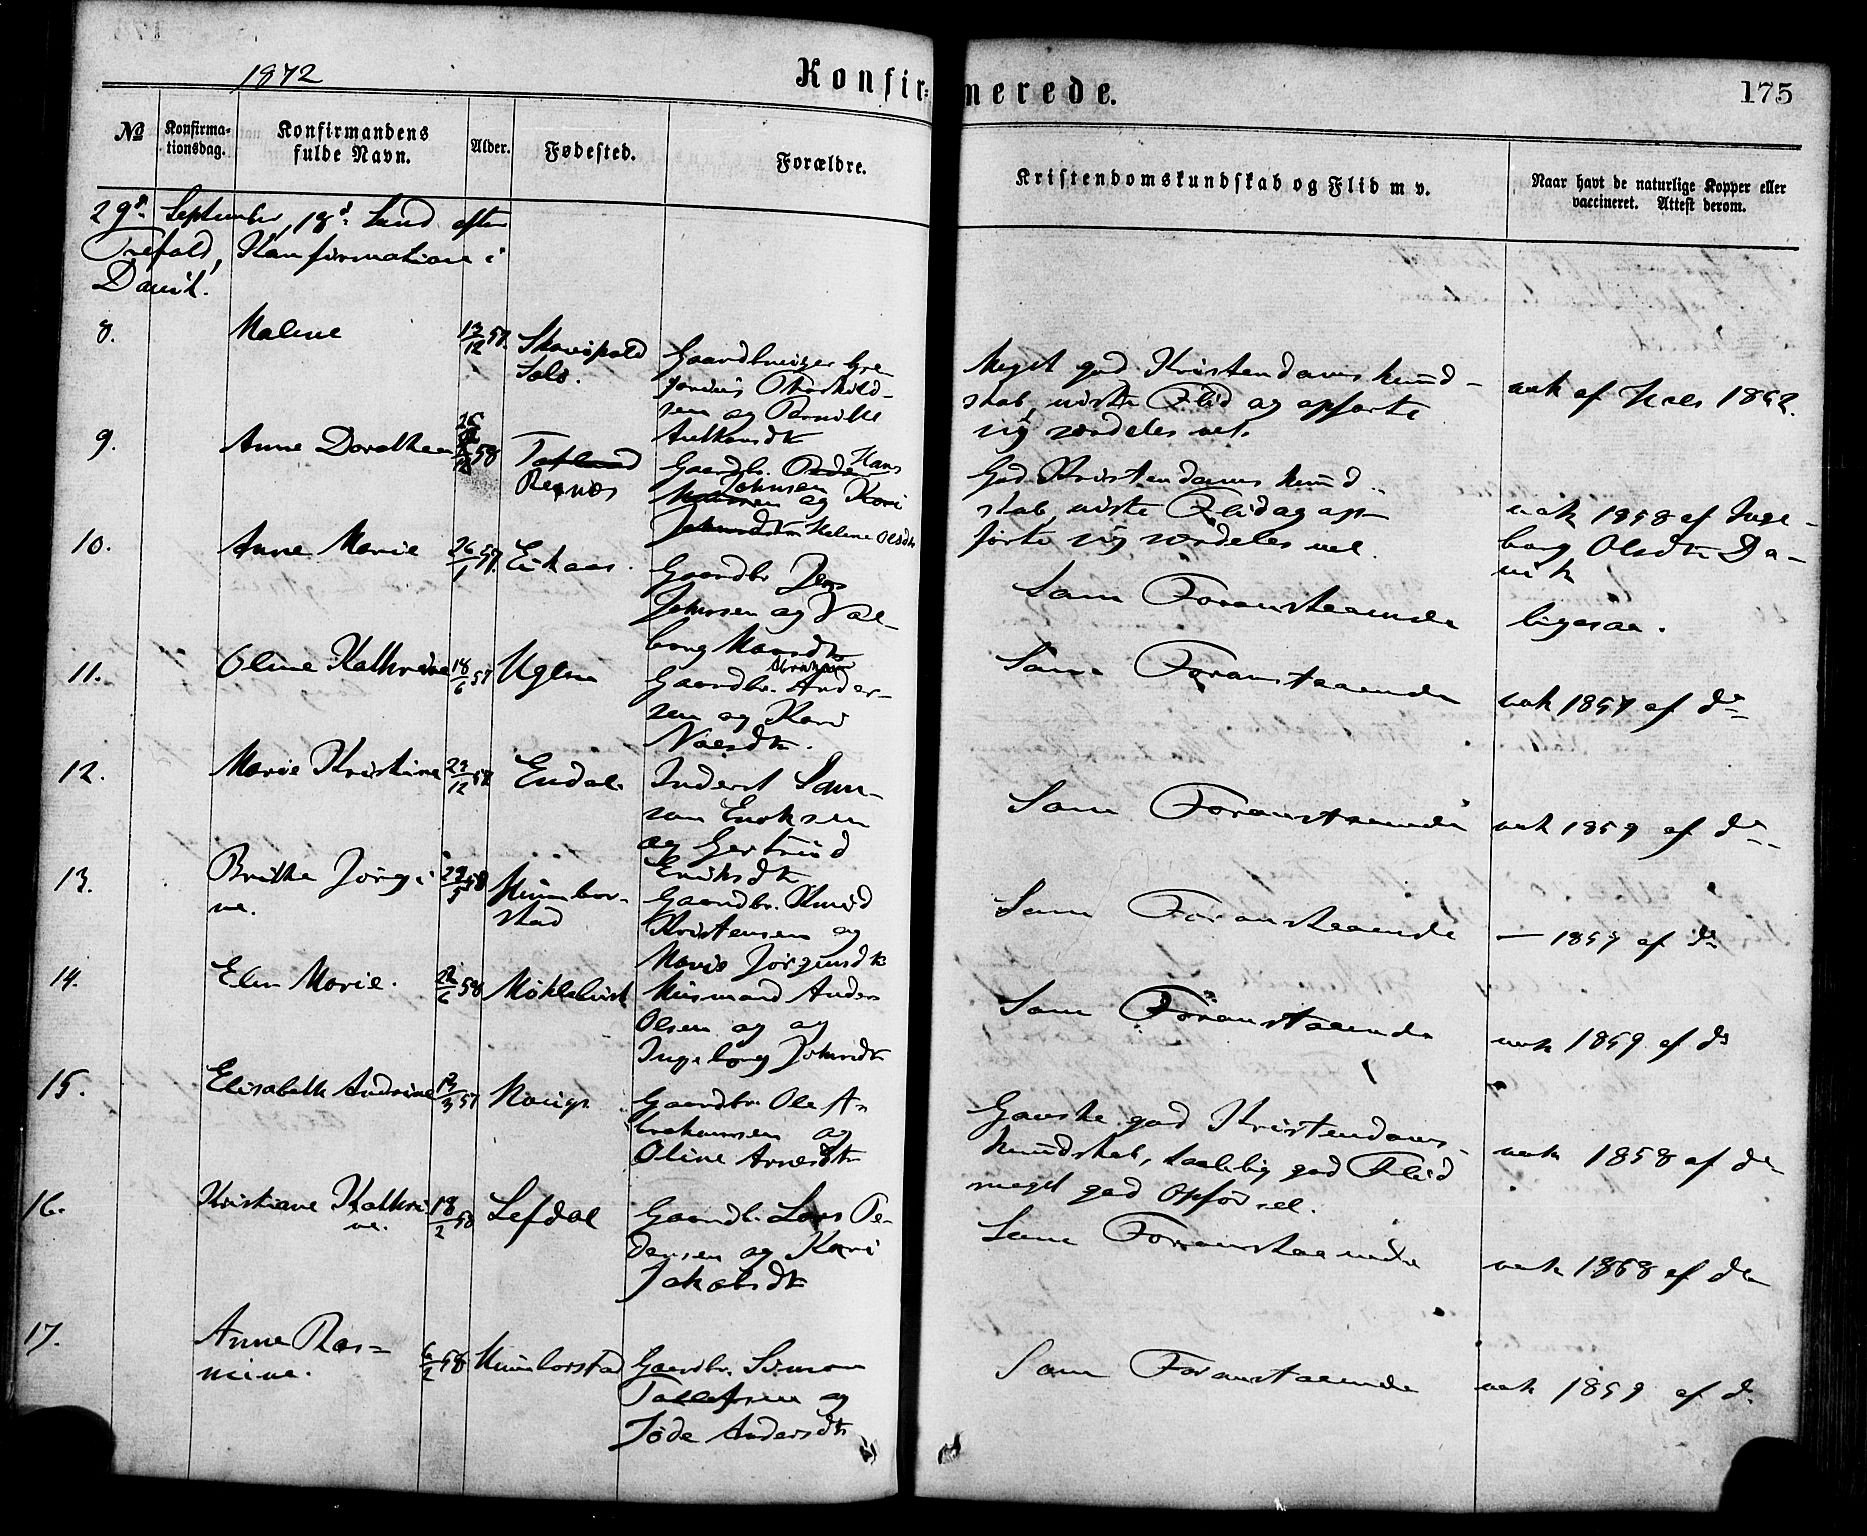 1872
Konfir=
merede.
175
No
Konfirma-
tionsdag.
Konfirmandens
fulde Navn.
Alder.
Fødested.
Forældre.
Kristendomskundskab og Flid m v.
Naar havt de naturlige Kopper eller
vaccineret. Attest derom.
29de September, 18de Sønd. efter
Trefold, Konfirmation i
Davik.
8.
Malene
Gaardbruger Gre-
gorius
sen og Pernille
Meget god Kristendomskund-
skab, viste Flid og opførte
sig særdeles vel.
vak af 1862.
9.
Anne Dorothea
58
Rernæs
Gaardbr. Peder Hans
Johnsen
og Kari
Helene Olsdtr
God Kristendomskund-
skab, viste Flid og op-
førte sig særdeles vel.
vak 1858 af Inge-
borg Olsdtr Da-
vik
10.
Anne Marie
26/1 57.
Eikaas.
Gaardbr. Jens
Johnsen og Val-
borg Monsdtr
Som Foranstaaende
ligesaa.
11.
Oline Kathrine
18/6 57
Uglen
Abraham
Gaardbr. Ander-
sen og Kari
Nilsdtr.
Som Foranstaaende
vak 1857 af do
12.
Marie Kristine
Endal.
Inderst Sam-
son Enoksen
og Gertrud
Eriksdtr
Som Foranstaaende
vak 1859 af do
13.
Brithe Jørgi-
ne.
29/5 58
Humbor-
stad
Gaardbr. Knud
Kristensen og
Marie Jørgensdtr
Som Foranstaaende
— 1857 af do
14.
Elen Marie.
58
Møklebust
Husmand Anders
Olsen og og
Ingeborg Johnsdtr
Som Foranstaaende
vak 1859 af do
15.
Elisabeth Andrine
57
Gaardbr. Ole A-
brahamsen og
Oline Arnesdtr
Ganske god Kristendoms-
kundskab, taalelig god Flid
meget god Opførsel.
vak 1858 af do
16.
Kristiane Kathri
ne.
18/2 58
Lefdal
Gaardbr. Lars Pe-
dersen og Kari
Jakobsdtr
Som Foranstaaende
vak 1868 af do
17.
Anne Ras=
mine.
6/2 58
Humborstad
Gaardbr. Simon
Tollefsen og
Jøde Andersdtr
Som Foranstaaende
vak 1859 af do